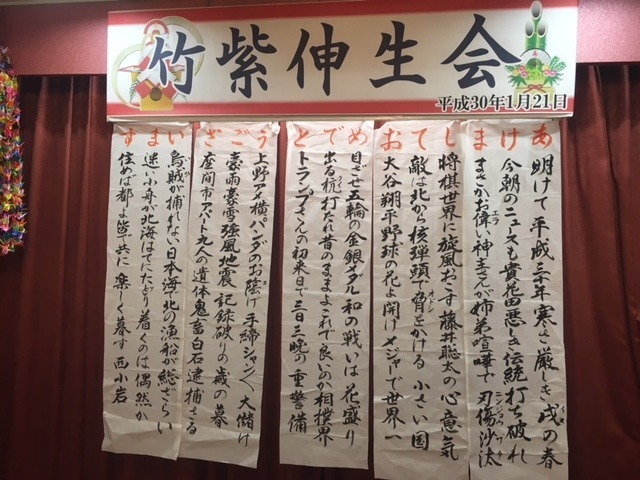 竹紫伸生会
平成30年1月21日
あ 明けて 平成三十年 寒さ厳しき 戌の春
け 今朝のニュースも貴乃花 悪しき伝統 打ち破れ
ま まさかお偉い神主さんが姉弟喧嘩で刃傷沙汰
し 将棋世界に旋風おこす 藤井聡太の心意気
て 敵は北から核弾頭で脅しかける 小さい国
お 大谷翔平野球の花よ開け メジャーで世界一
め 目ざせ五輪の金銀メダル 和の戦いは 花盛り
で 出る杭打たれ昔のままよこれで良いのか相撲界
と トランプさんの初来日で三日三晩の重警備
う 上野アメ横パンダのお蔭 手締シャンシャン 大儲け
ご 豪雨豪雪強風地震 記録破りの歳の暮
ざ 座間市アパート九人の遺体鬼畜白石逮捕さる
い 烏賊が捕れない日本海北の漁船が総ざらい
ま 迷い小舟が北海はてにたどり着くのは偶然か
す 住めば都よ皆共に 楽しく暮す 西小岩